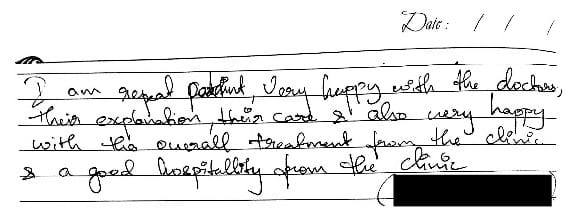 Date: / / /
I am repeat patint, Very happy with the doctors,
their explanation, their care & also very happy
with the overall treatment from the clinic
& a good hospitallity from the clinic